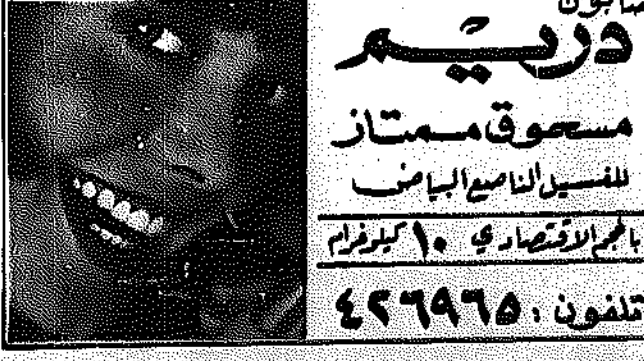 صابون
دريم
مسحوق ممتاز
للغسيل الناصع البياض
بالحجم الاقتصادي ١٠ كيلوغرام
تلفون : ٤٢٦٩٦٥